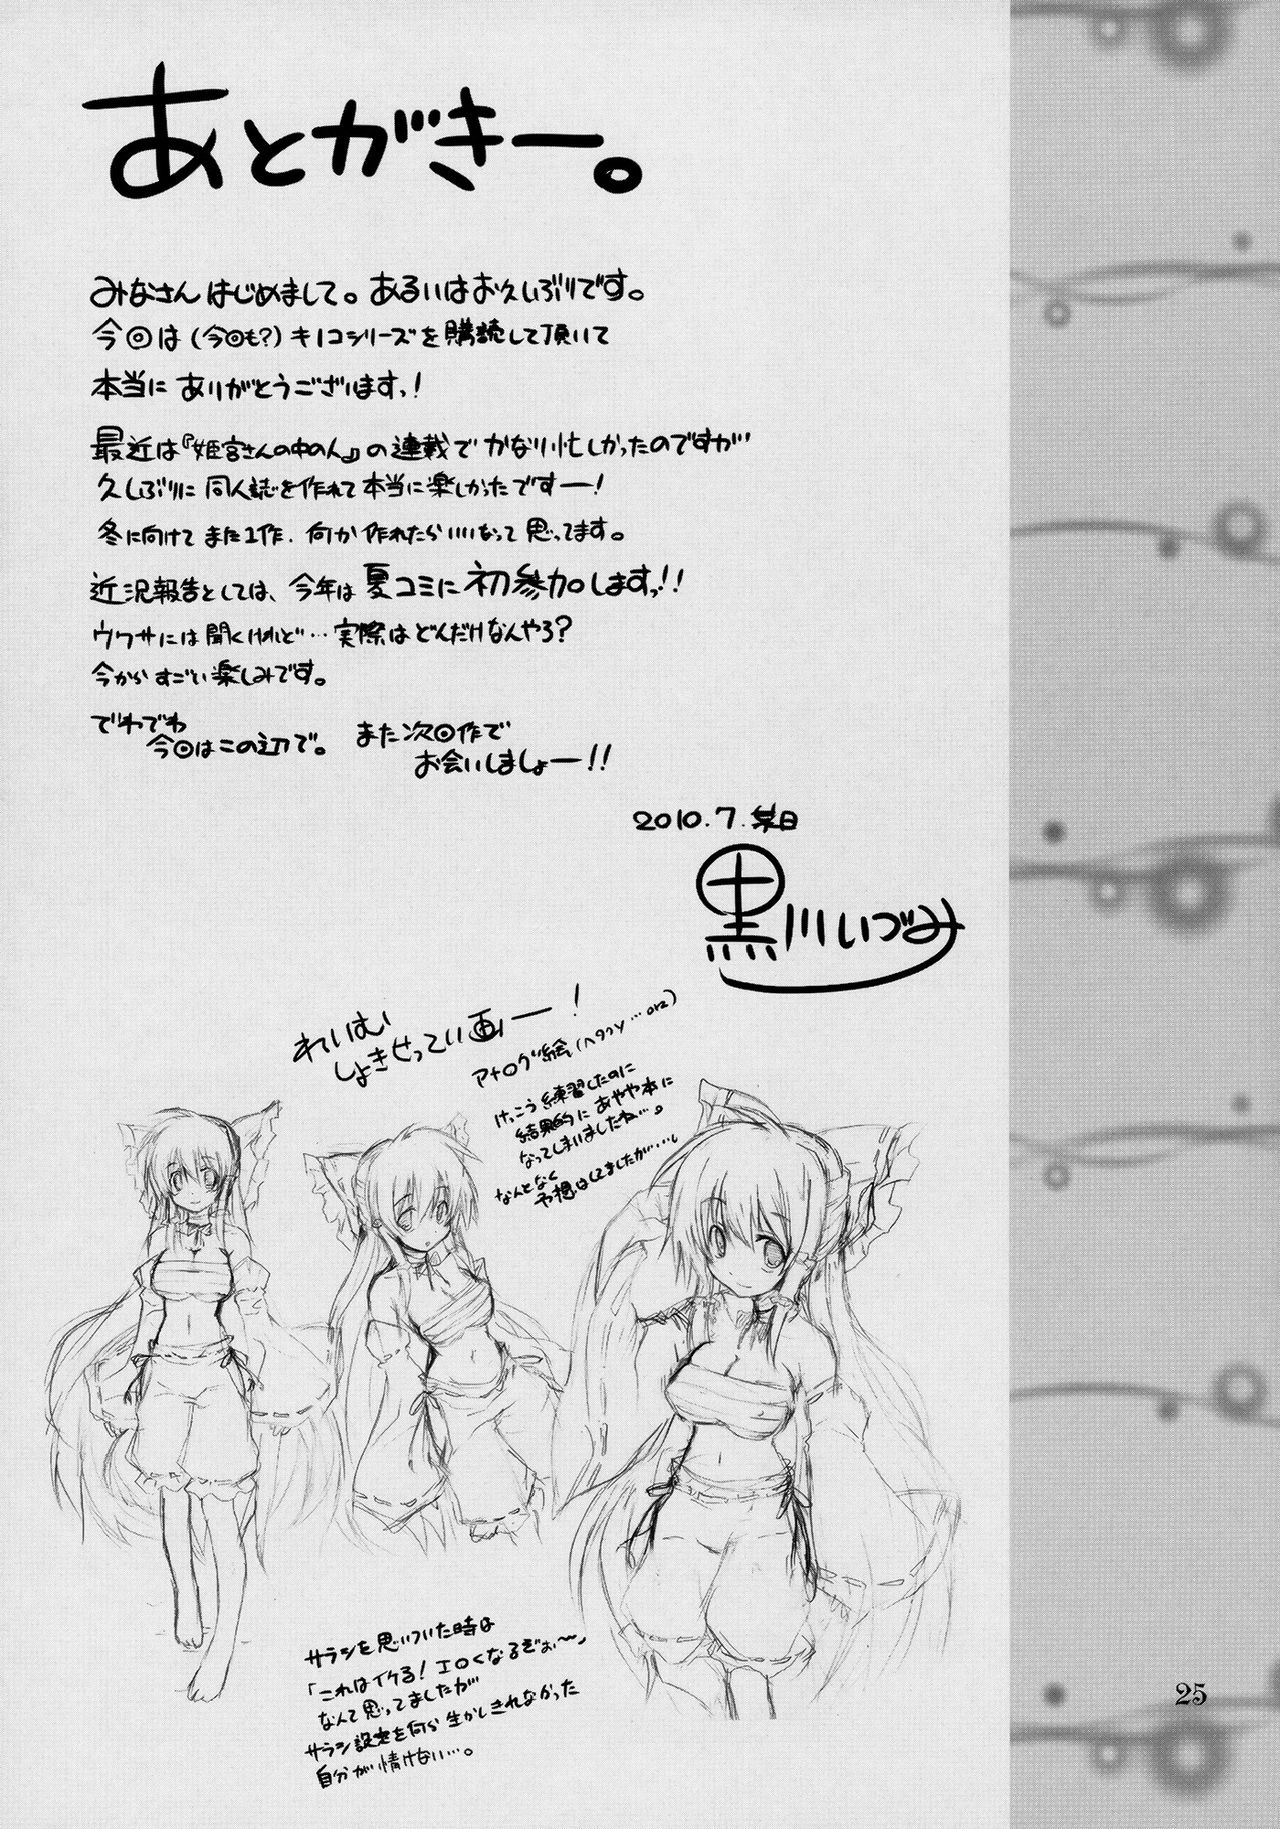 あとがきー。
みなさん はじめまして。あるいはお久しぶりです。
今回は(今回も?)キノコシリーズを購読して頂いて
本当に ありがとうございますっ!
最近は『姫宮さんの中の人』の連載で かなり忙しかったのですが…
久しぶりに 同人誌を作れて本当に楽しかったですー!
冬に向けて また1作. 何か作れたらいいなって思ってます。
近況報告としては、今年は夏コミに初参加しますっ!!
ウワサには聞くけれど…実際はどんだけなんやろ?
今からすごい楽しみです。
でわでわ
今回はこの辺で。 また次回作で
お会いしましょー!!
2010.7.某日
黒川いづみ
れいむ
しょきせってい画ー!
アナログ絵(ヘタクソ…orz)
けっこう練習したのに
結果的に あやや本に
なってしまいましたね…。
なんとなく
予想はしてましたが…。
サラシを思いついた時は
「これはイケる!エロくなるぞぉ〜」
なんて思ってましたが
サラシ設定を何ら生かしきれなかった
自分が情けない…。
25